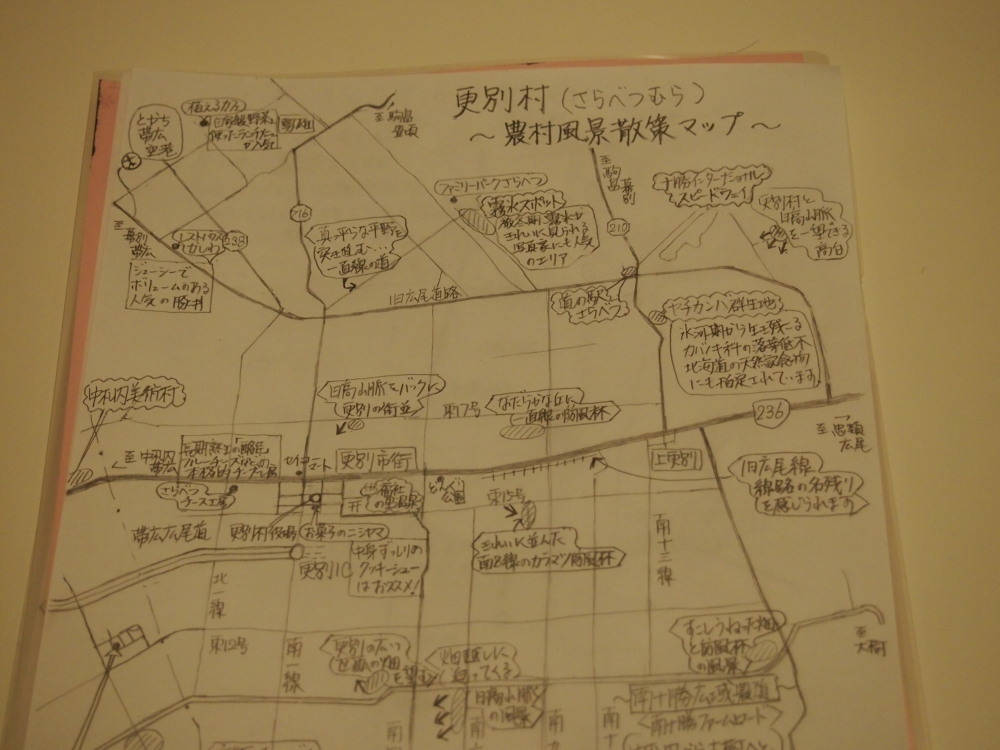 更別村(さらべつむら)
～農村風景散策マップ～
とかち
帯広
空港
至駒畠
至幕別
帯広
レストハウス
かしわ
238
ジューシーで
ボリュームのある
人気の豚丼
716
真っ平らな平野を
突き進む…
一直線の道
ファミリーパークさらべつ
霧氷スポット
厳冬期、霧氷が
きれいに見られる
写真家にも人気
のエリア
至駒畠
幕別
210
十勝インターナショナル
スピードウェイ
更別村と
日高山脈
を一望できる
高台
旧広尾道路
道の駅
さらべつ
ヤチカンバ群生地
氷河期から生き残る
カバノキ科の落葉低木
北海道の天然記念物
にも指定されています。
中札内美術村
日高山脈をバックに
更別の街並
東17号
なだらかな丘に
一直線の防風林
236
至忠類
広尾
至中札内
帯広
セイコーマート
更別市街
上更別
さらべつ
チーズ工房
どんぐり
公園
東15号
旧広尾線
線路の名残り
を感じられます
帯広広尾道
更別村役場
お菓子のニシヤマ
更別IC
中身ずっしりの
クッキーシュー
はおススメ!
きれいに並んだ
南8線のカラマツ防風林
南十三線
北一線
東12号
南一線
更別の広い
日高山脈
の風景
すこしうねった畑
と防風林
の風景
至大樹
南十勝広域農道
南十勝ファームロード